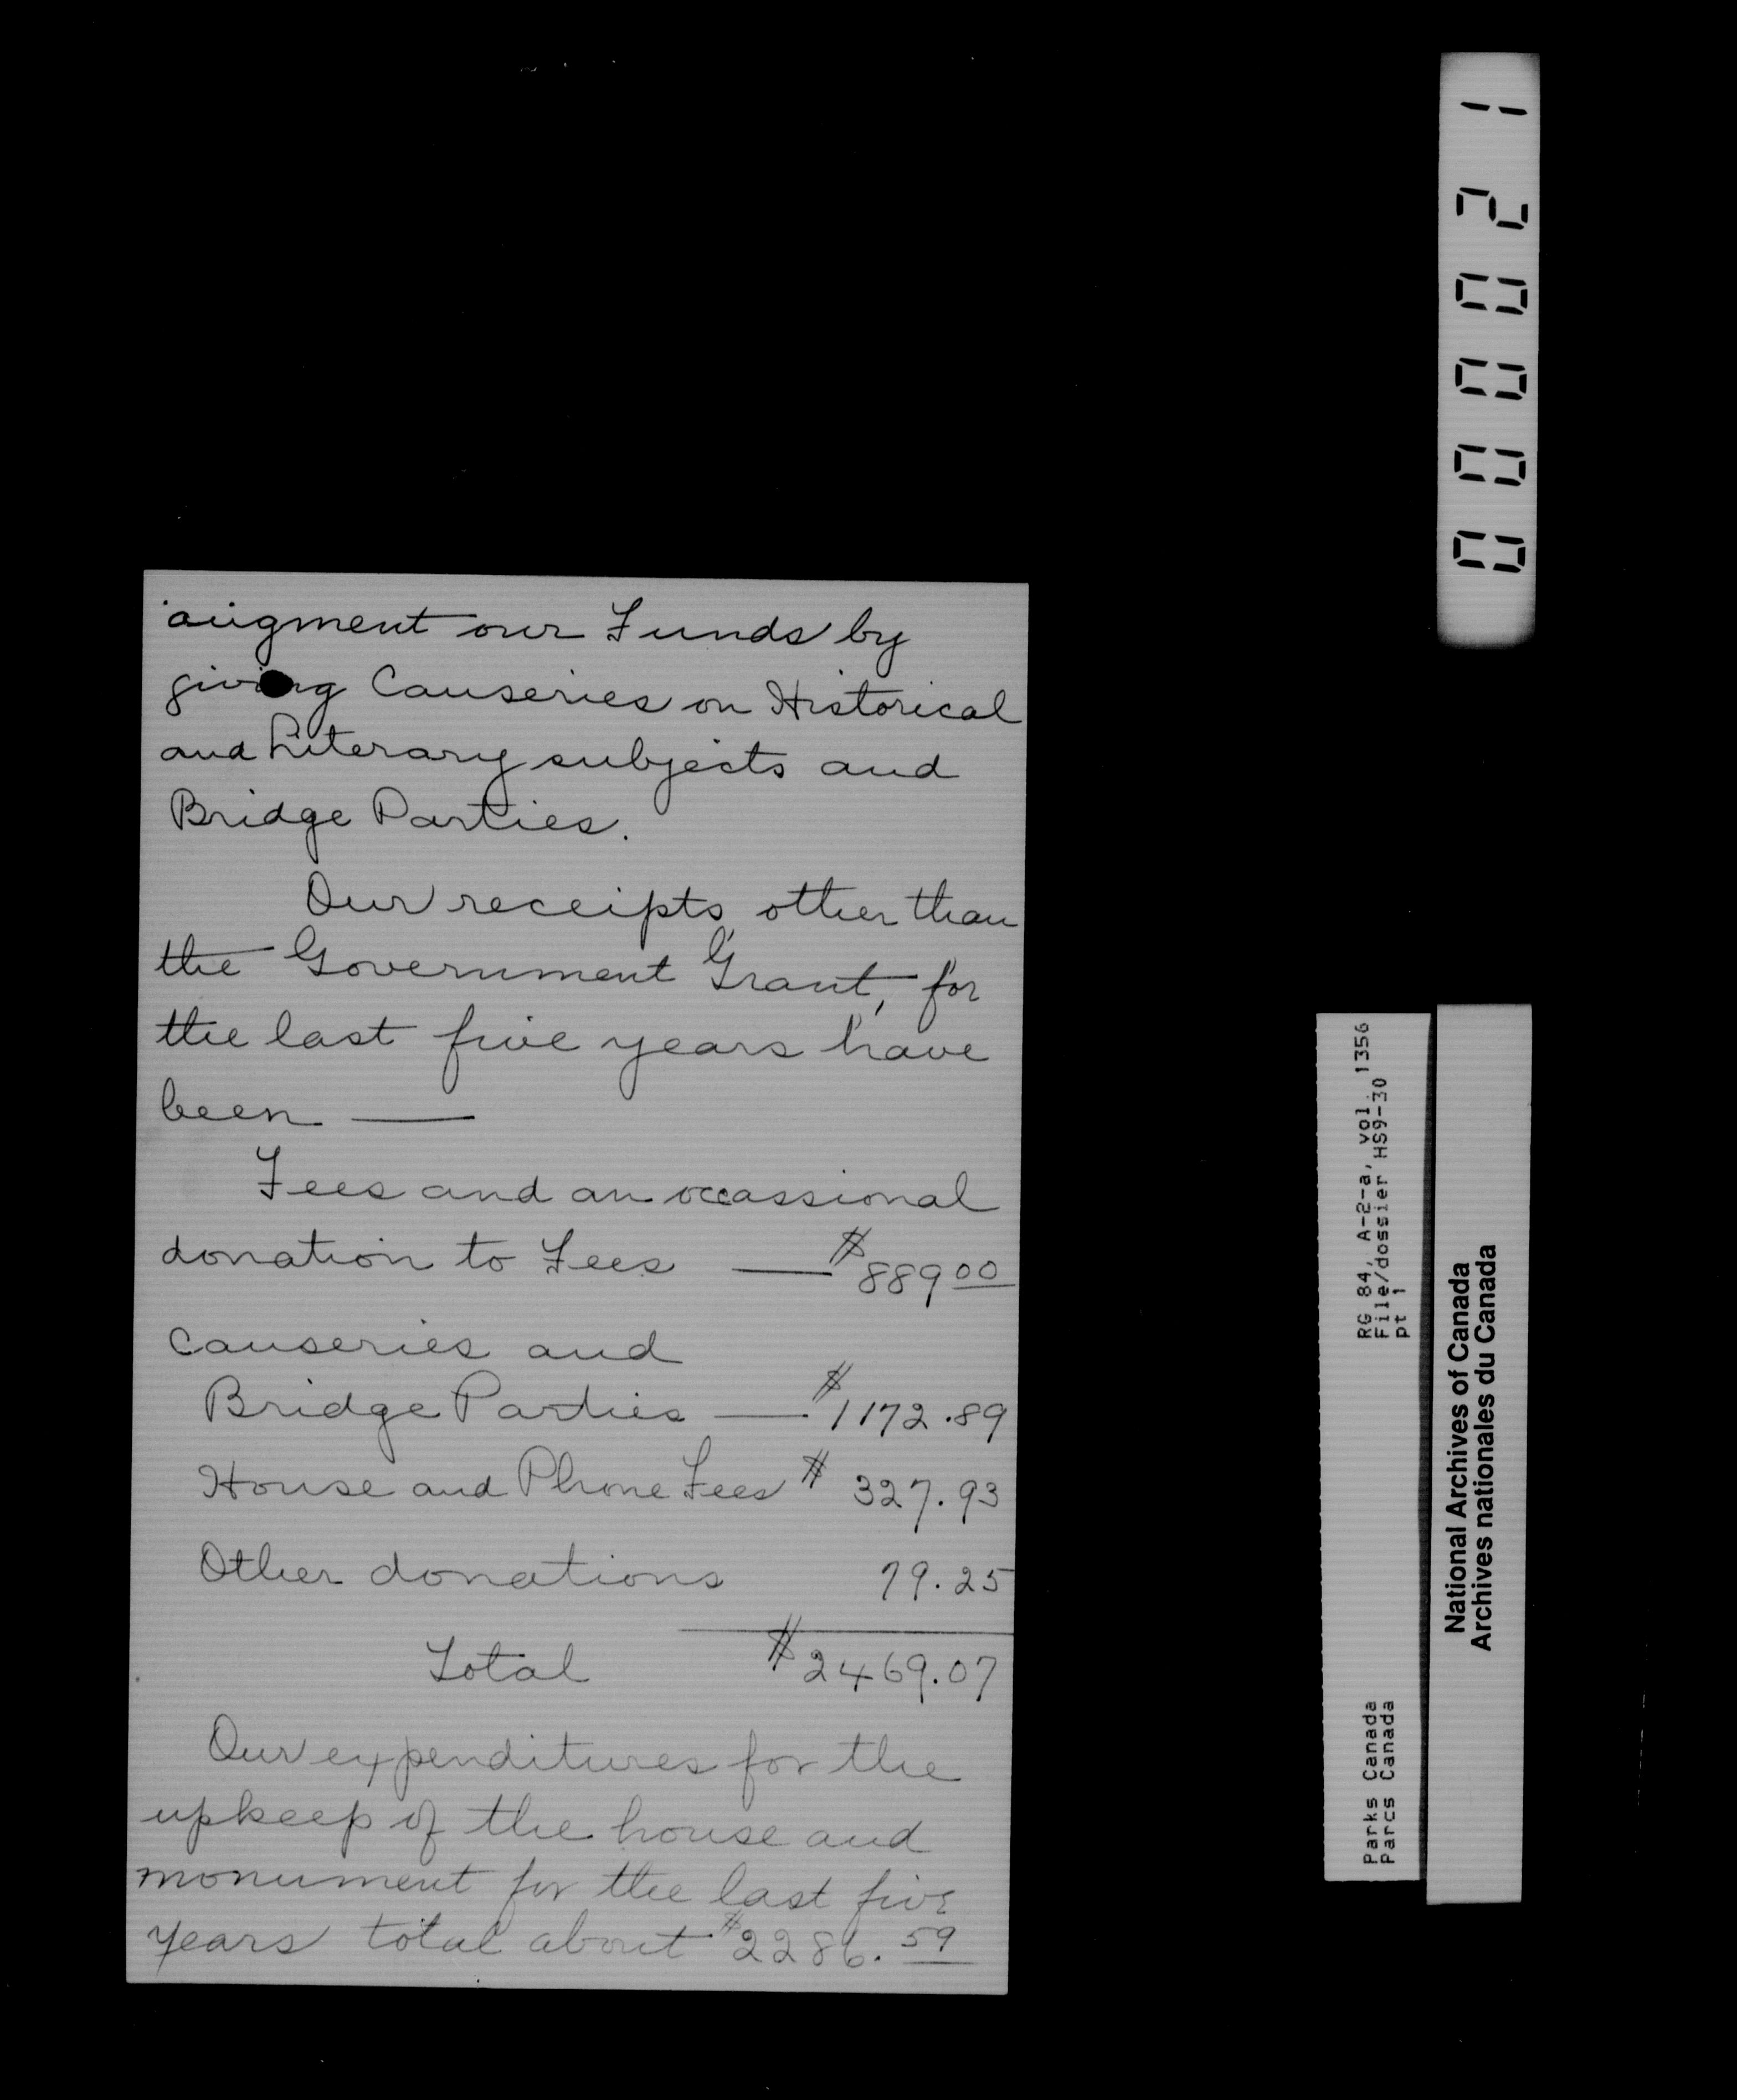 augment our Funds by
giving Causeries on Historical
and Literary subjects and
Bridge Parties.
Our receipts, other than
the Government Grant, for
the last five years have
been —
Fees and an occassional
donation to Fees — $889 00
Causeries and
Bridge Parties — $1172.89
House and Phone Fees $ 327.93
Other donations 79.25
Total $2469.07
Our expenditures for the
upkeep of the house and
monument for the last five
years total about $2286.59
000021
RG 84, A-2-a, vol. 1356
File/dossier HS9-30
pt 1
Parks Canada
Parcs Canada
National Archives of Canada
Archives nationales du Canada